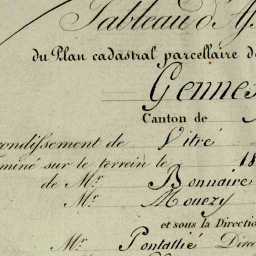 Tableau d'As
du Plan cadastral parcellaire de
Gennes
Canton de
rondissement de Vitré
miné sur le terrein le 18
de Mr Bonnaire
Mr Mouezy
et sous la Direction
Mr Pontallié Dire